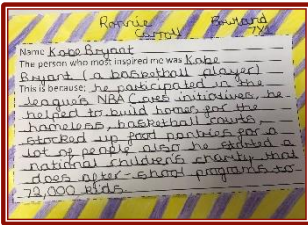 Ronnie
Carroll
Name Kobe Bryant
The person who most inspired me was Kobe
Bryant (a basketball player)
This is because: he participated in the
league's NBA Cares initiatives, he
helped to build homes for the
homeless, basketball courts,
stocked up food pantries for a
lot of people also he started a
national children's charity that
does after-shool programs to
72,000 kids